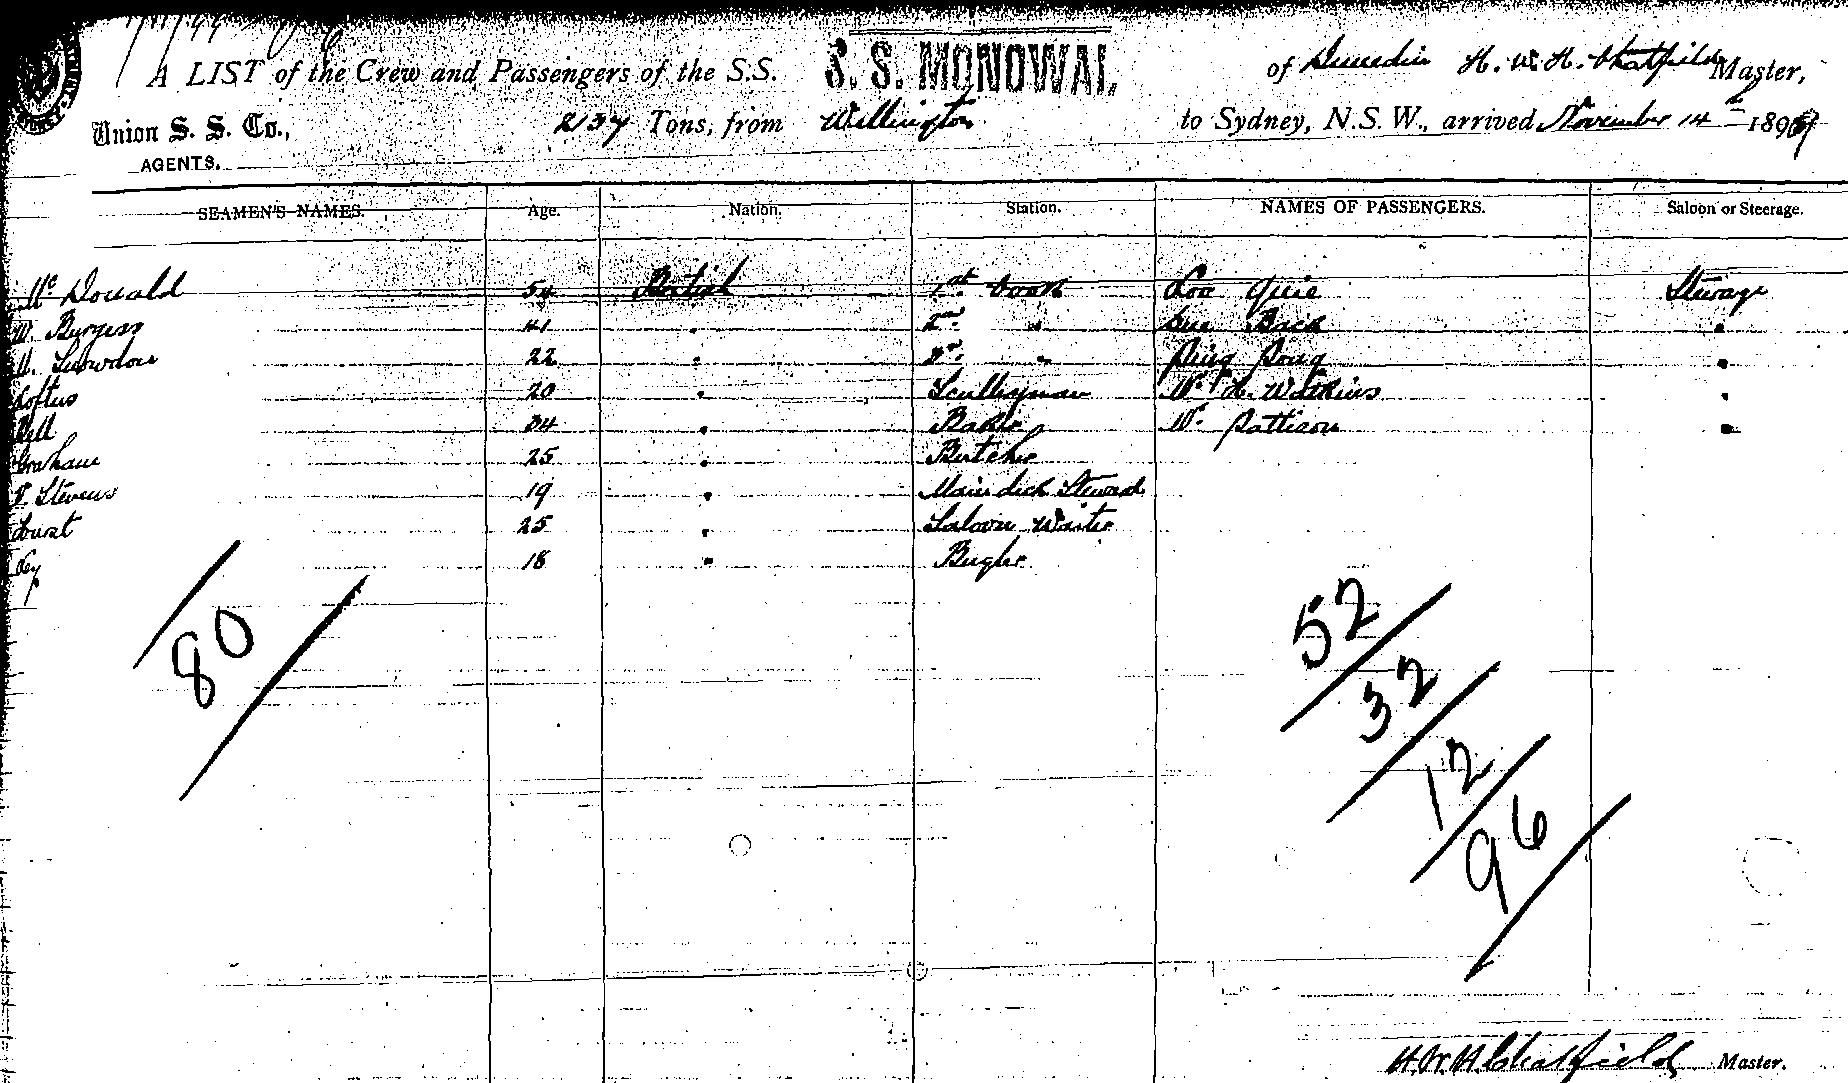 A LIST of the Crew and Passengers of the S.S. S. S. MONOWAI, of Dunedin H. W. H. Chatfield Master,
Union S. S. Co., 2137 Tons, from Wellington to Sydney, N.S.W., arrived November 14th 189
AGENTS.
SEAMEN'S NAMES. Age. Nation. Station. NAMES OF PASSENGERS. Saloon or Steerage.
McDonald 54 British 1st Cook Loo Steerage
W. Burgess 41 " 2nd " Back "
Snowdon 22 " " "
Loftus 20 " Scullyman W. H. Watkins "
Bell 34 " Baker W. Pattison "
Graham 25 " Butcher
Stevens 19 " Main deck Steward
25 " Saloon Waiter
18 " Bugler
80
52
32
12
96
H.W.H. Chatfield Master.